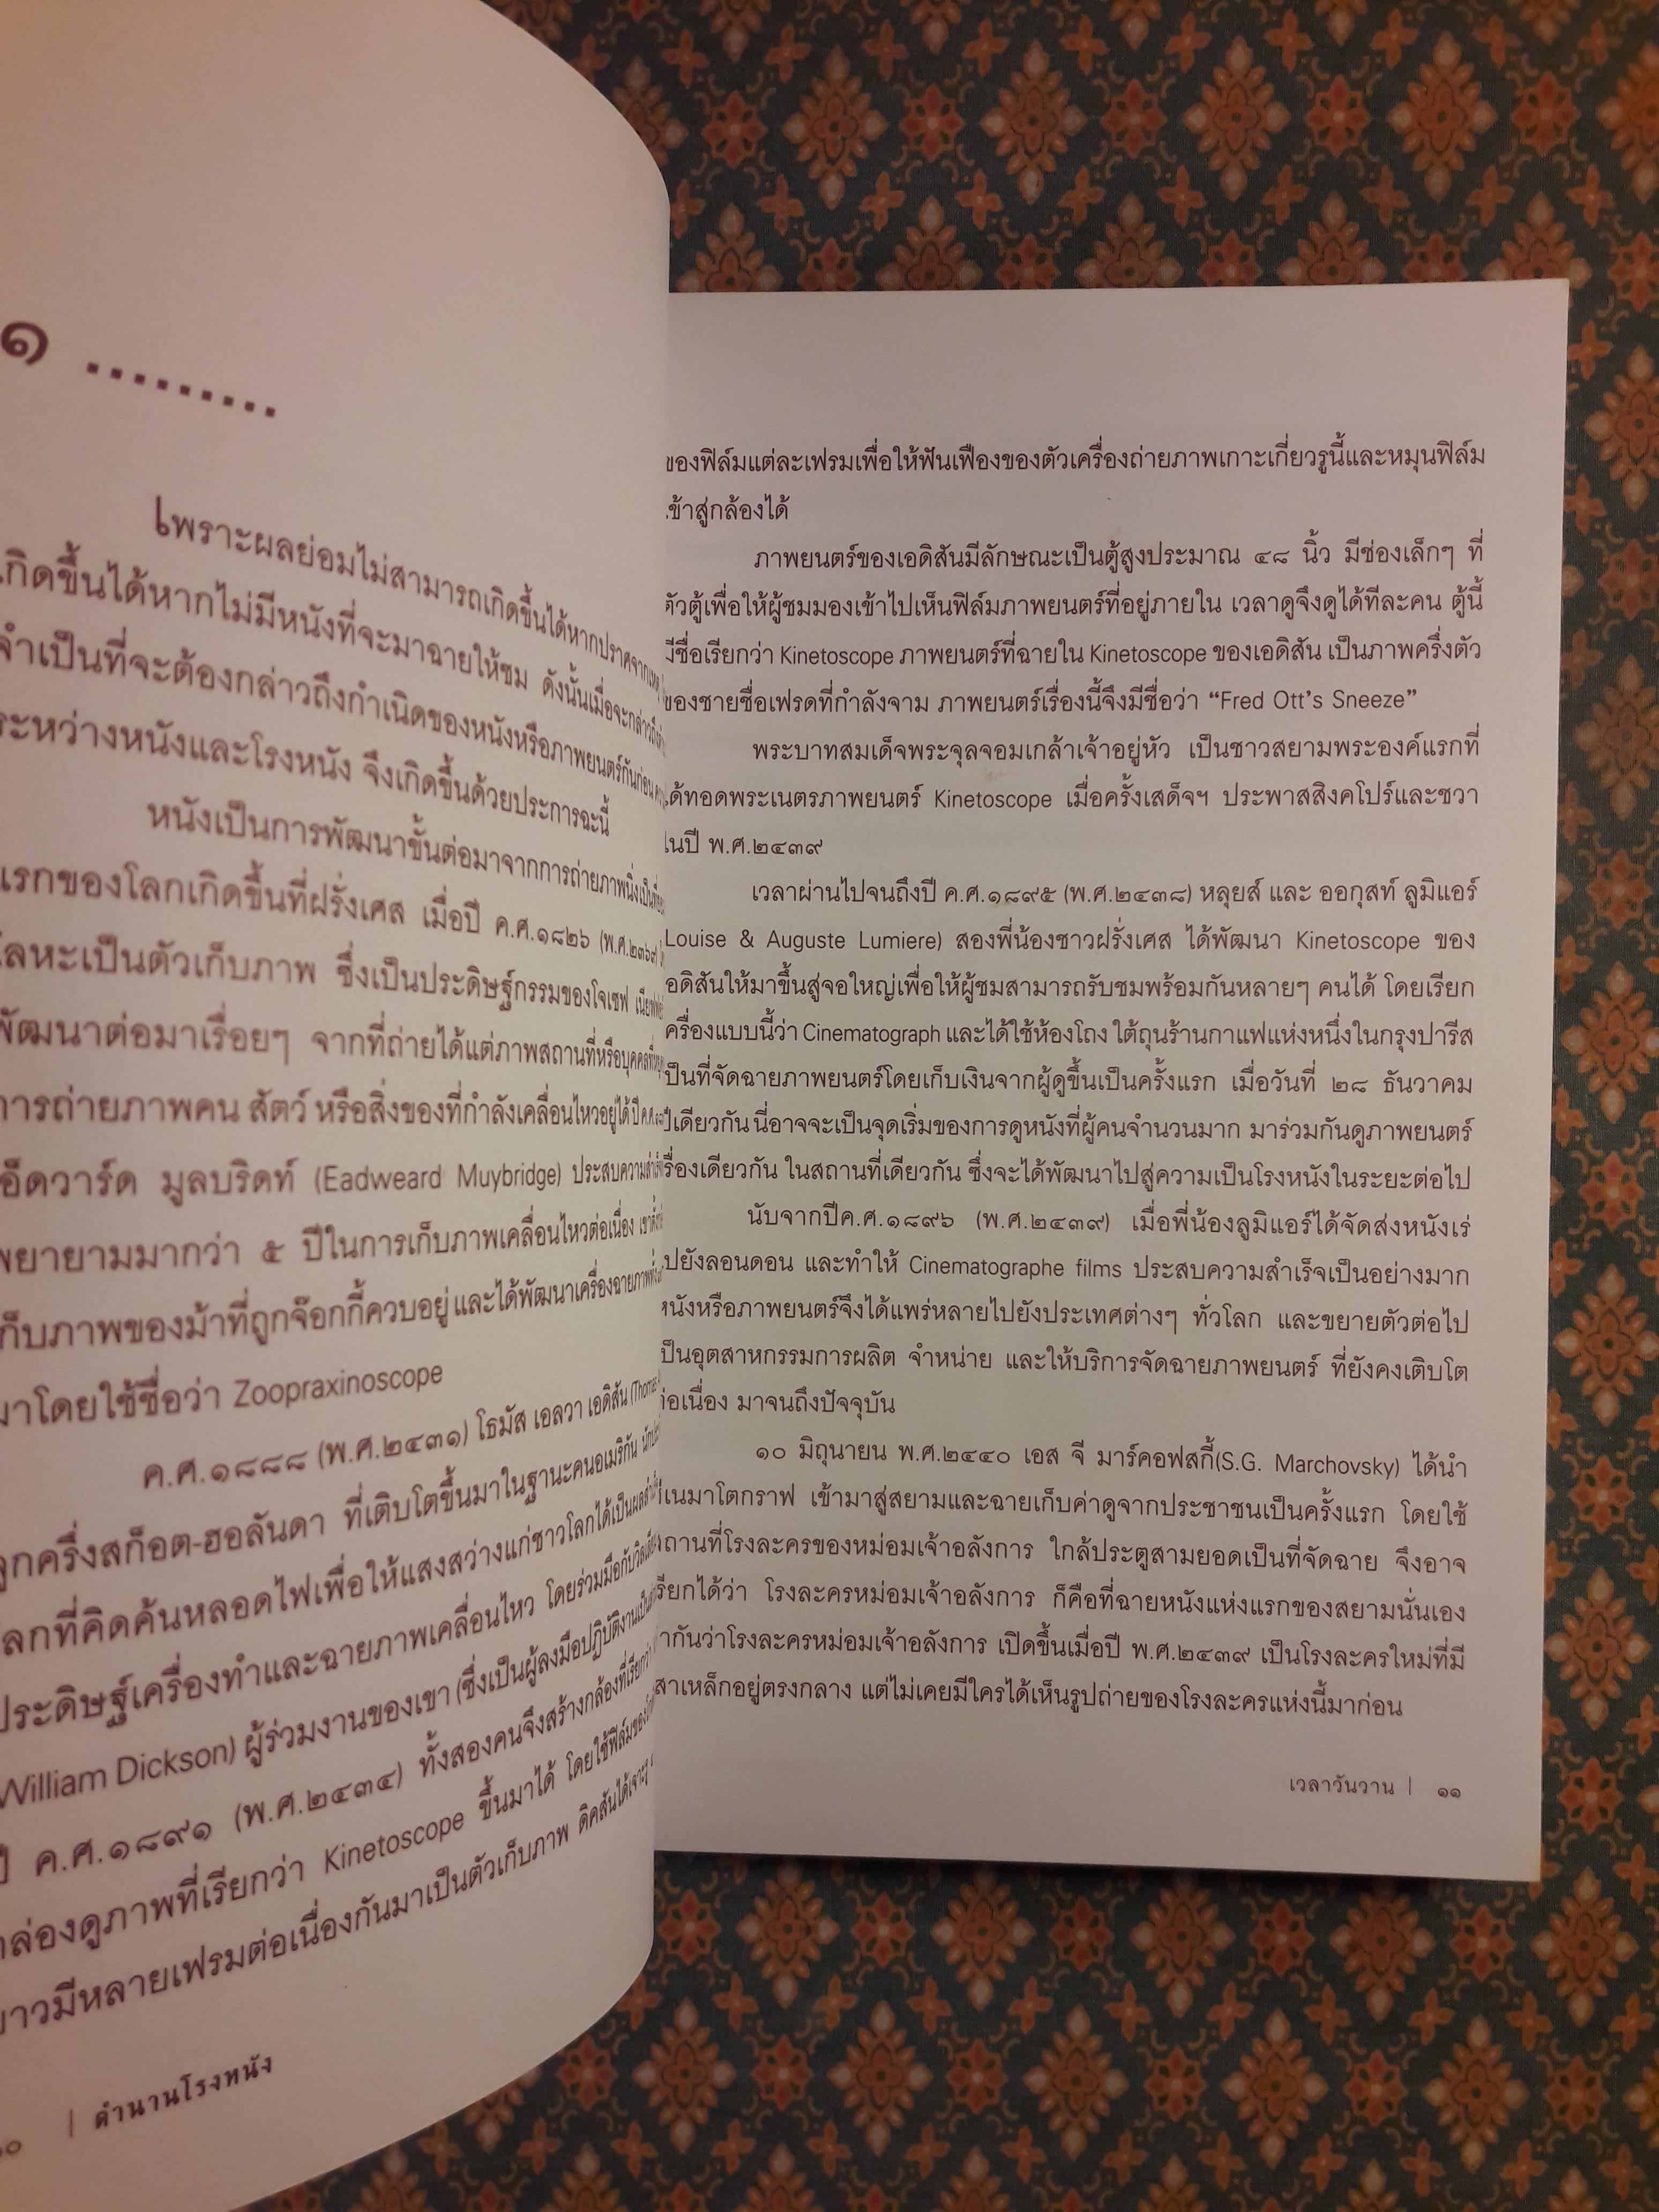 ๑ .........
เพราะผลย่อมไม่สามารถเกิดขึ้นได้หากปราศจากเหตุ
เกิดขึ้นได้หากไม่มีหนังที่จะมาฉายให้ชม ดังนั้นเมื่อจะกล่าวถึง
จำเป็นที่จะต้องกล่าวถึงกำเนิดของหนังหรือภาพยนตร์กันก่อน
ระหว่างหนังและโรงหนัง จึงเกิดขึ้นด้วยประการฉะนี้
หนังเป็นการพัฒนาขั้นต่อมาจากการถ่ายภาพนิ่ง
แรกของโลกเกิดขึ้นที่ฝรั่งเศส เมื่อปี ค.ศ.๑๘๒๖ (พ.ศ.๒๓๖๙)
โลหะเป็นตัวเก็บภาพ ซึ่งเป็นประดิษฐ์กรรมของโจเซฟ
พัฒนาต่อมาเรื่อยๆ จากที่ถ่ายได้แต่ภาพสถานที่หรือบุคคล
การถ่ายภาพคน สัตว์ หรือสิ่งของที่กำลังเคลื่อนไหวอยู่ได้
อ็ดวาร์ด มูลบริดท์ (Eadweard Muybridge) ประสบความสำเร็จ
พยายามมากว่า ๕ ปีในการเก็บภาพเคลื่อนไหวต่อเนื่อง
เก็บภาพของม้าที่ถูกจ๊อกกี้ควบอยู่ และได้พัฒนาเครื่องฉายภาพ
มาโดยใช้ชื่อว่า Zoopraxinoscope
ค.ศ.๑๘๘๘ (พ.ศ.๒๔๓๑) โธมัส เอลวา เอดิสัน (Thomas
ลูกครึ่งสก็อต-ฮอลันดา ที่เติบโตขึ้นมาในฐานะคนอเมริกัน
โลกที่คิดค้นหลอดไฟเพื่อให้แสงสว่างแก่ชาวโลกได้เป็นผลสำเร็จ
ประดิษฐ์เครื่องทำและฉายภาพเคลื่อนไหว โดยร่วมมือกับ
William Dickson) ผู้ร่วมงานของเขา (ซึ่งเป็นผู้ลงมือปฏิบัติงาน
ปี ค.ศ.๑๘๙๑ (พ.ศ.๒๔๓๔) ทั้งสองคนจึงสร้างกล้องที่เรียกว่า
กล่องดูภาพที่เรียกว่า Kinetoscope ขึ้นมาได้ โดยใช้ฟิล์มของ
ยาวมีหลายเฟรมต่อเนื่องกันมาเป็นตัวเก็บภาพ ดิคสันได้เจาะรู
| ตำนานโรงหนัง
ของฟิล์มแต่ละเฟรมเพื่อให้ฟันเฟืองของตัวเครื่องถ่ายภาพเกาะเกี่ยวรูนี้และหมุนฟิล์ม
เข้าสู่กล้องได้
ภาพยนตร์ของเอดิสันมีลักษณะเป็นตู้สูงประมาณ ๔๘ นิ้ว มีช่องเล็กๆ ที่
ตัวตู้เพื่อให้ผู้ชมมองเข้าไปเห็นฟิล์มภาพยนตร์ที่อยู่ภายใน เวลาดูจึงดูได้ทีละคน ตู้นี้
มีชื่อเรียกว่า Kinetoscope ภาพยนตร์ที่ฉายใน Kinetoscope ของเอดิสัน เป็นภาพครึ่งตัว
ของชายชื่อเฟรดที่กำลังจาม ภาพยนตร์เรื่องนี้จึงมีชื่อว่า “Fred Ott’s Sneeze”
พระบาทสมเด็จพระจุลจอมเกล้าเจ้าอยู่หัว เป็นชาวสยามพระองค์แรกที่
ได้ทอดพระเนตรภาพยนตร์ Kinetoscope เมื่อครั้งเสด็จฯ ประพาสสิงคโปร์และชวา
ในปี พ.ศ.๒๔๓๙
เวลาผ่านไปจนถึงปี ค.ศ.๑๘๙๕ (พ.ศ.๒๔๓๘) หลุยส์ และ ออกุสท์ ลูมิแอร์
Louise & Auguste Lumiere) สองพี่น้องชาวฝรั่งเศส ได้พัฒนา Kinetoscope ของ
อดิสันให้มาขึ้นสู่จอใหญ่เพื่อให้ผู้ชมสามารถรับชมพร้อมกันหลายๆ คนได้ โดยเรียก
ครื่องแบบนี้ว่า Cinematograph และได้ใช้ห้องโถง ใต้ถุนร้านกาแฟแห่งหนึ่งในกรุงปารีส
ป็นที่จัดฉายภาพยนตร์โดยเก็บเงินจากผู้ดูขึ้นเป็นครั้งแรก เมื่อวันที่ ๒๘ ธันวาคม
ปีเดียวกัน นี่อาจจะเป็นจุดเริ่มของการดูหนังที่ผู้คนจำนวนมาก มาร่วมกันดูภาพยนตร์
รื่องเดียวกัน ในสถานที่เดียวกัน ซึ่งจะได้พัฒนาไปสู่ความเป็นโรงหนังในระยะต่อไป
นับจากปีค.ศ.๑๘๙๖ (พ.ศ.๒๔๓๙) เมื่อพี่น้องลูมิแอร์ได้จัดส่งหนังเร่
ปยังลอนดอน และทำให้ Cinematographe films ประสบความสำเร็จเป็นอย่างมาก
หนังหรือภาพยนตร์จึงได้แพร่หลายไปยังประเทศต่างๆ ทั่วโลก และขยายตัวต่อไป
ป็นอุตสาหกรรมการผลิต จำหน่าย และให้บริการจัดฉายภาพยนตร์ ที่ยังคงเติบโต
ต่อเนื่อง มาจนถึงปัจจุบัน
๑๐ มิถุนายน พ.ศ.๒๔๔๐ เอส จี มาร์คอฟสกี้(S.G. Marchovsky) ได้นำ
ซีเนมาโตกราฟ เข้ามาสู่สยามและฉายเก็บค่าดูจากประชาชนเป็นครั้งแรก โดยใช้
ถานที่โรงละครของหม่อมเจ้าอลังการ ใกล้ประตูสามยอดเป็นที่จัดฉาย จึงอาจ
รียกได้ว่า โรงละครหม่อมเจ้าอลังการ ก็คือที่ฉายหนังแห่งแรกของสยามนั่นเอง
ากันว่าโรงละครหม่อมเจ้าอลังการ เปิดขึ้นเมื่อปี พ.ศ.๒๔๓๙ เป็นโรงละครใหม่ที่มี
สาเหล็กอยู่ตรงกลาง แต่ไม่เคยมีใครได้เห็นรูปถ่ายของโรงละครแห่งนี้มาก่อน
เวลาวันวาน | ๑๑